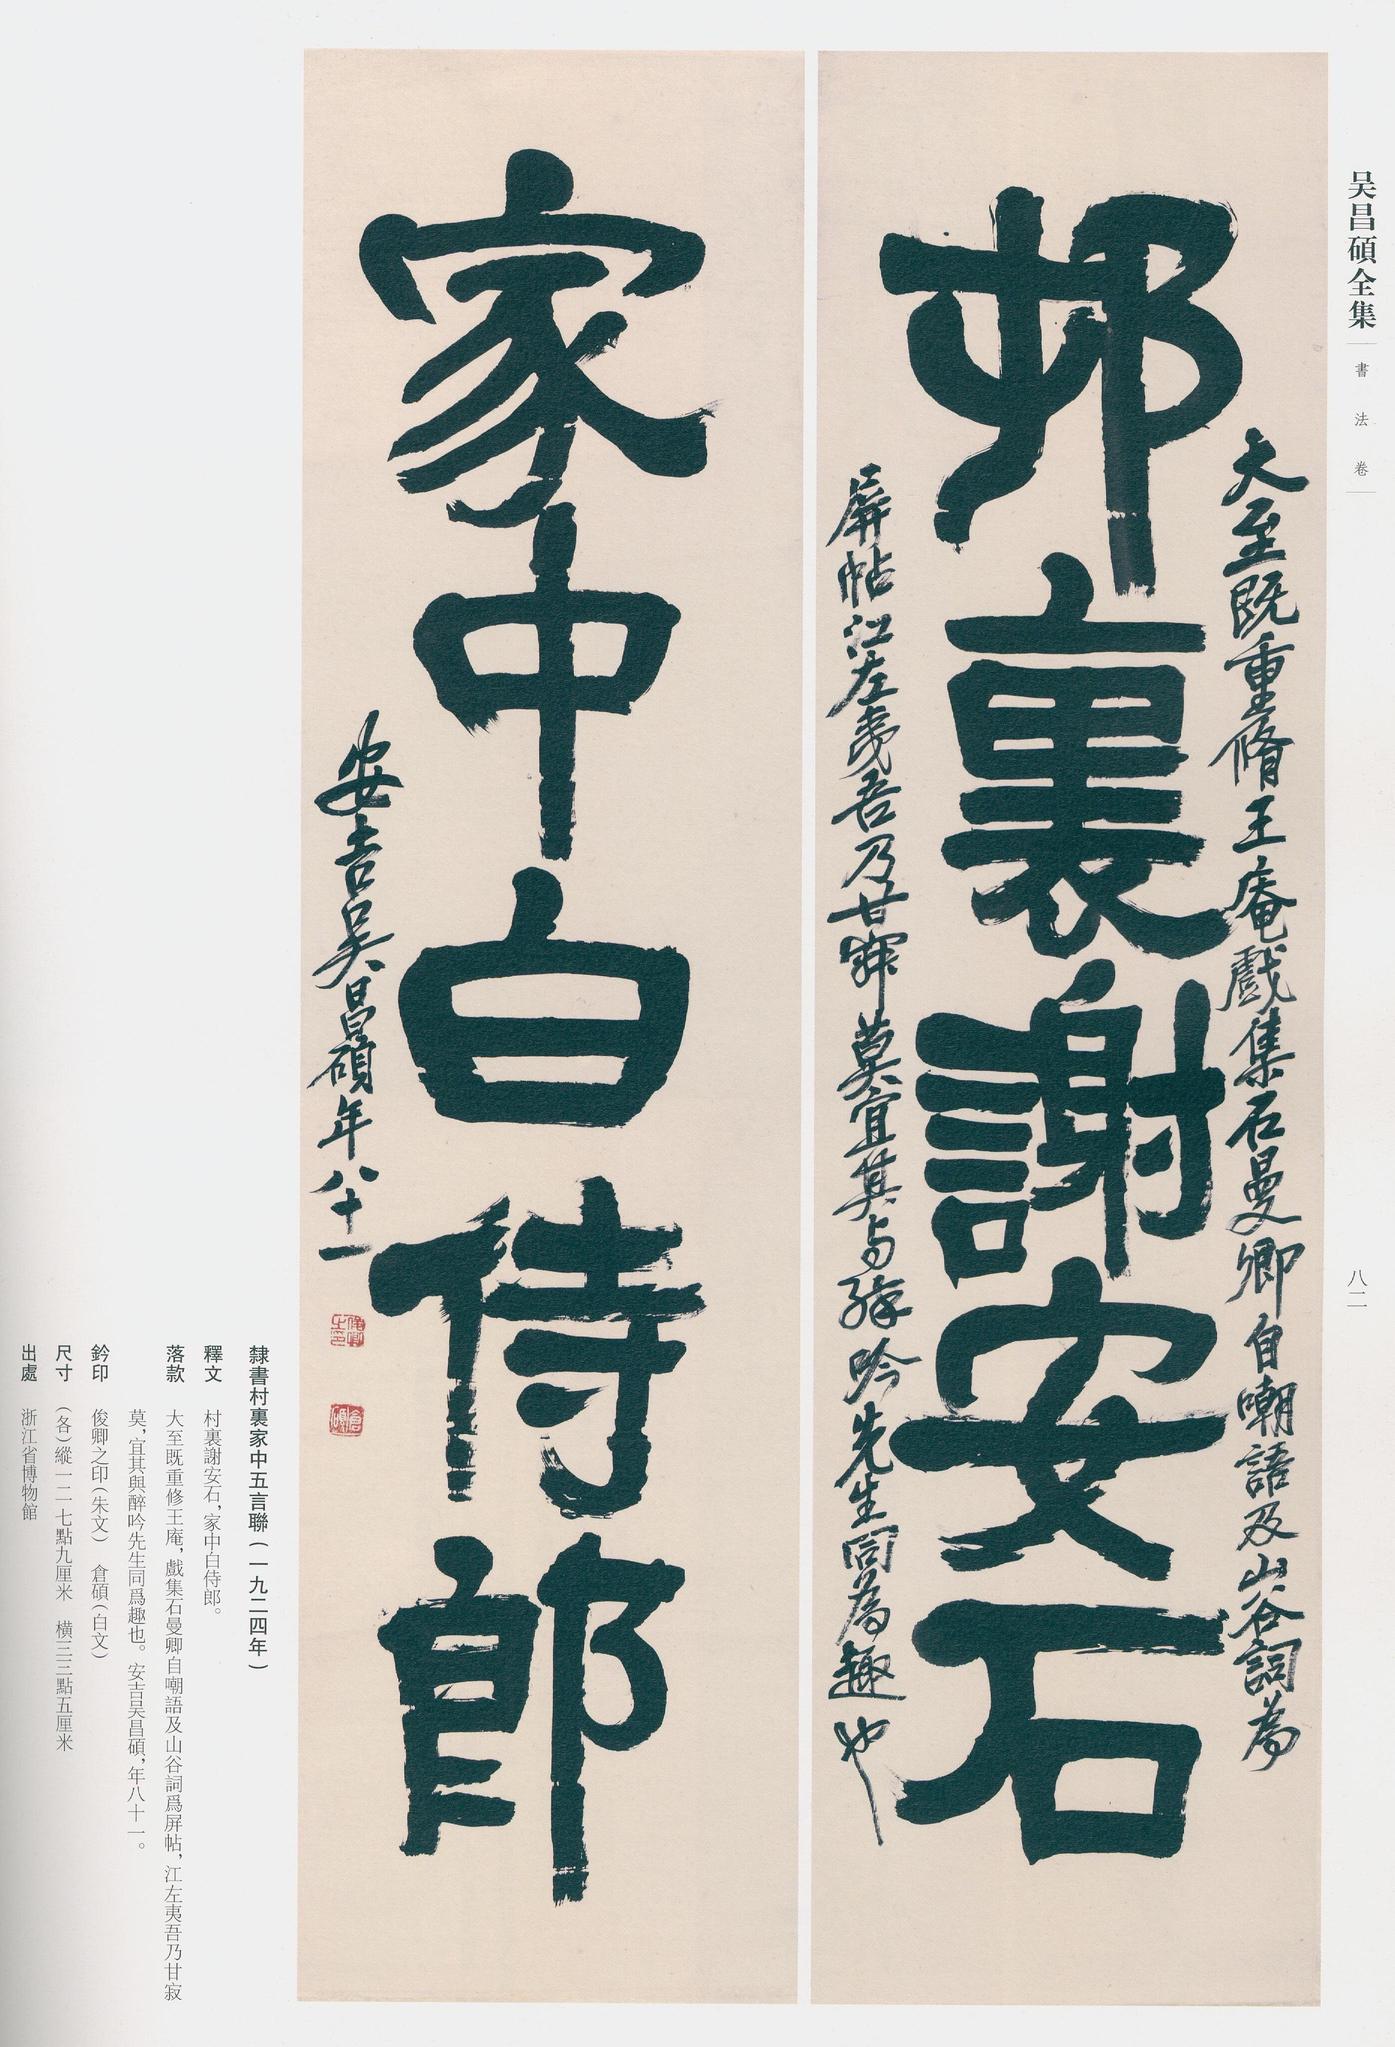 吴昌碩全集
書法卷
八二
邨裏謝安石
大至既重脩王庵戲集石曼卿自嘲語及山谷詞為
屏帖江左夷吾乃甘寂莫宜其与醉吟先生同為趣也
家中白侍郎
安吉吴昌碩年八十一
俊卿之印
倉碩
隸書村裏家中五言聯（一九二四年）
釋文　村裏謝安石，家中白侍郎。
落款　大至既重修王庵，戲集石曼卿自嘲語及山谷詞爲屏帖，江左夷吾乃甘寂
莫，宜其與醉吟先生同爲趣也。安吉吴昌碩，年八十一。
鈐印　俊卿之印（朱文）　倉碩（白文）
尺寸　（各）縱一二七點九厘米　橫三三點五厘米
出處　浙江省博物館